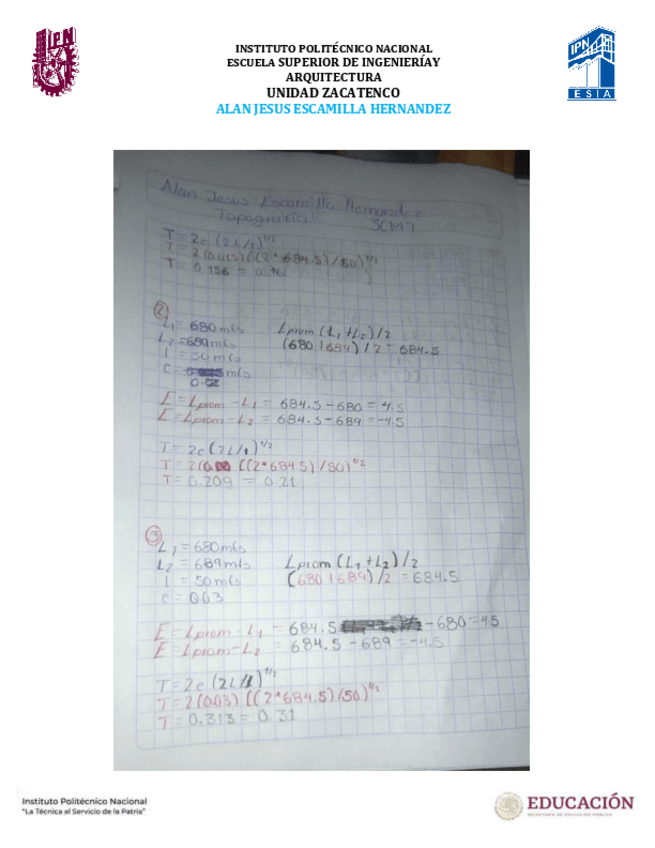 IPN
INSTITUTO POLITÉCNICO NACIONAL
ESCUELA SUPERIOR DE INGENIERÍAY
ARQUITECTURA
UNIDAD ZACATENCO
ALAN JESUS ESCAMILLA HERNANDEZ
IPN
ESIA
Alan Jesus Escamilla Hernandez
Topografía 3CM7
T = 2c (2L/l)^1/2
T = 2(0.015)((2*684.5)/50)^1/2
T = 0.156 = 0.16
②
L1 = 680 mts Lprom (L1+L2)/2
L2 = 689 mts (680+689)/2 = 684.5
l = 50 mts
C = mts
0.02
E = Lprom - L1 = 684.5 - 680 = 4.5
E = Lprom - L2 = 684.5 - 689 = -4.5
T = 2c (2L/l)^1/2
T = 2(0.00 [(2*684.5)/50)^1/2
T = 0.209 = 0.21
③
L1 = 680 mts
L2 = 689 mts Lprom (L1+L2)/2
l = 50 mts (680+689)/2 = 684.5
c = 0.03
E = Lprom - L1 = 684.5 - 680 = 4.5
E = Lprom - L2 = 684.5 - 689 = -4.5
T = 2c (2L/l)^1/2
T = 2(0.03) [(2*684.5)/50)^1/2
T = 0.313 = 0.31
Instituto Politécnico Nacional
"La Técnica al Servicio de la Patria"
EDUCACIÓN
SECRETARÍA DE EDUCACIÓN PÚBLICA